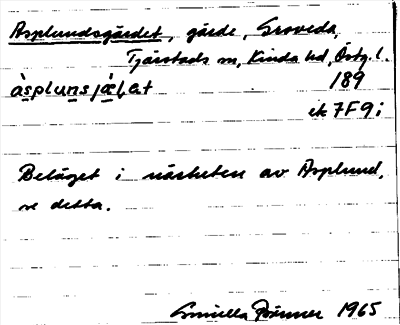 Asplundsgärdet, gärde, Groveda,
Tjärstads sn, Kinda hd, Östg. l.
189
ek 7F9i
Beläget i närheten av Asplund,
se detta.
Gunilla 1965